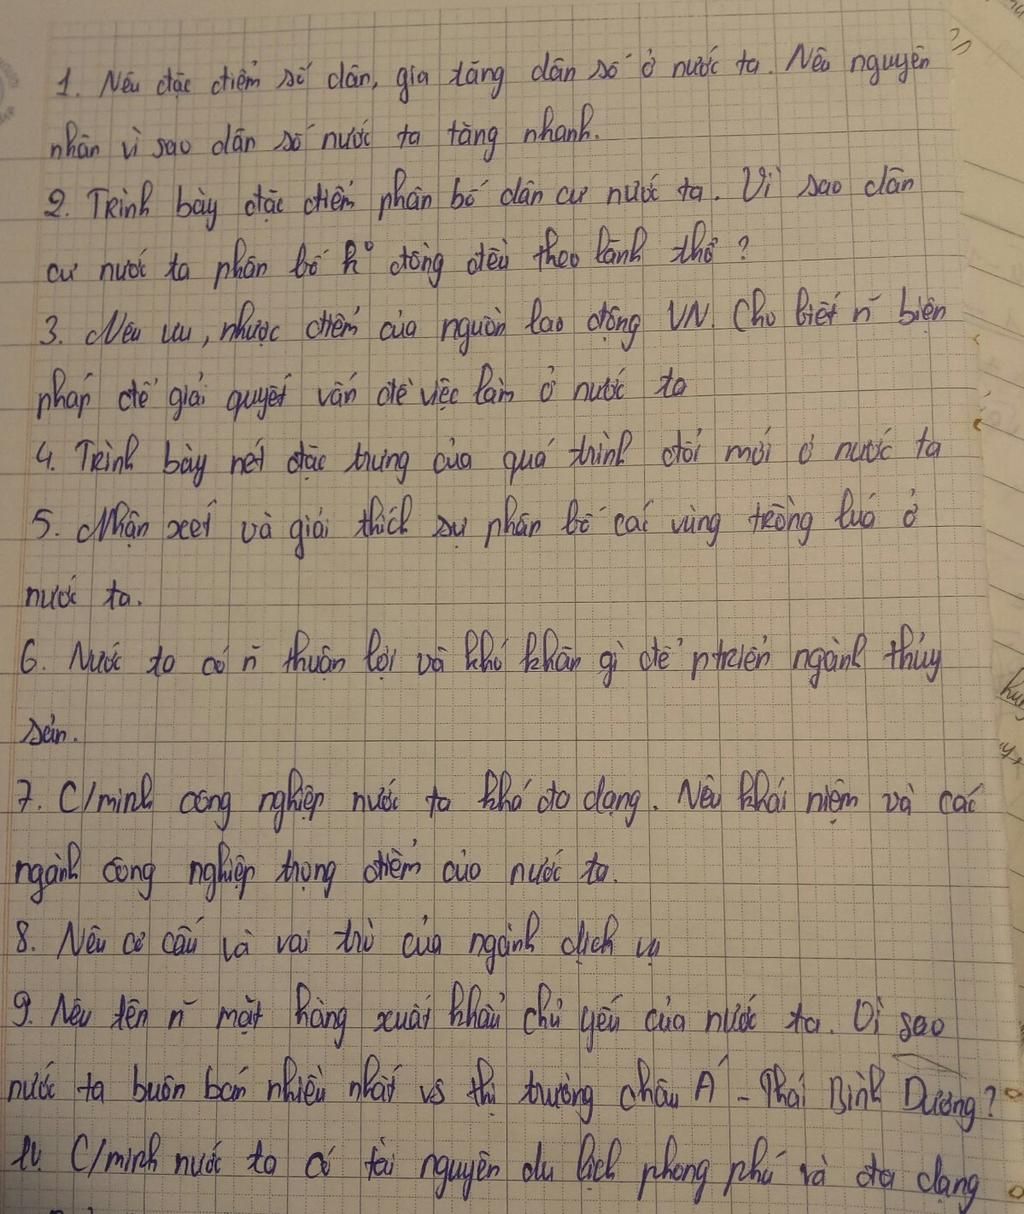 1. Nêu đặc điểm số dân, gia tăng dân số ở nước ta. Nêu nguyên
nhân vì sao dân số nước ta tăng nhanh.
2. Trình bày đặc điểm phân bố dân cư nước ta. Vì sao dân
cư nước ta phân bố k° đồng đều theo lãnh thổ?
3. Nêu ưu, nhược điểm của nguồn lao động VN. Cho biết n~ biện
pháp để giải quyết vấn đề việc làm ở nước ta
4. Trình bày nét đặc trưng của quá trình đổi mới ở nước ta
5. Nhận xét và giải thích sự phân bố các vùng trồng lúa ở
nước ta.
6. Nước ta có n~ thuận lợi và khó khăn gì để ptriển ngành thủy
sản.
7. C/minh công nghiệp nước ta khá đa dạng. Nêu khái niệm và các
ngành công nghiệp trọng điểm của nước ta.
8. Nêu cơ cấu và vai trò của ngành dịch vụ
9. Nêu tên n~ mặt hàng xuất khẩu chủ yếu của nước ta. Vì sao
nước ta buôn bán nhiều nhất vs thị trường châu Á - Thái Bình Dương?
10. C/minh nước ta có tài nguyên du lịch phong phú và đa dạng